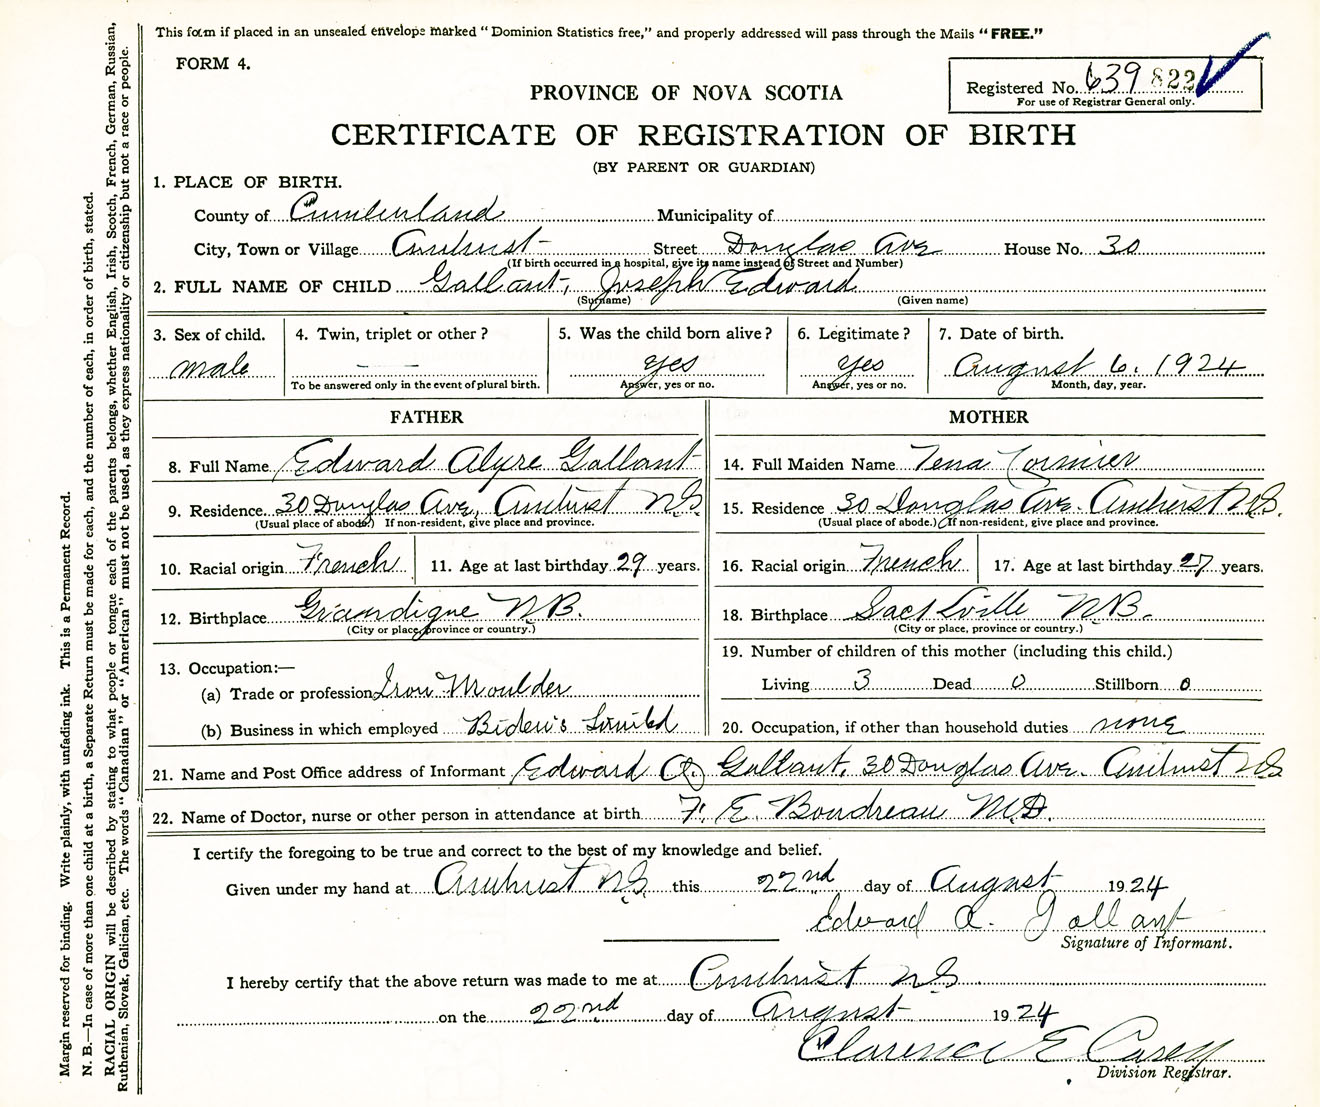 This form if placed in an unsealed envelope marked "Dominion Statistics free," and properly addressed will pass through the Mails "FREE."
FORM 4.
Registered No. 639 822
For use of Registrar General only.
PROVINCE OF NOVA SCOTIA
CERTIFICATE OF REGISTRATION OF BIRTH
(BY PARENT OR GUARDIAN)
1. PLACE OF BIRTH.
County of Cumberland Municipality of
City, Town or Village Amherst Street Douglas Ave House No. 30
(If birth occurred in a hospital, give its name instead of Street and Number)
2. FULL NAME OF CHILD Gallant, Joseph Edward
(Surname) (Given name)
3. Sex of child. 4. Twin, triplet or other? 5. Was the child born alive? 6. Legitimate? 7. Date of birth.
male — yes yes August 6. 1924
To be answered only in the event of plural birth. Answer, yes or no. Answer, yes or no. Month, day, year.
FATHER MOTHER
8. Full Name Edward Alyre Gallant 14. Full Maiden Name Tena Cormier
9. Residence 30 Douglas Ave, Amherst N.S. 15. Residence 30 Douglas Ave. Amherst N.S.
(Usual place of abode.) If non-resident, give place and province. (Usual place of abode.) If non-resident, give place and province.
10. Racial origin French 11. Age at last birthday 29 years. 16. Racial origin French 17. Age at last birthday 27 years.
12. Birthplace Grandigue N.B. 18. Birthplace Sackville N.B.
(City or place, province or country.) (City or place, province or country.)
13. Occupation:— 19. Number of children of this mother (including this child.)
(a) Trade or profession Iron Moulder Living 3 Dead 0 Stillborn 0
(b) Business in which employed Limited 20. Occupation, if other than household duties none
21. Name and Post Office address of Informant Edward A. Gallant, 30 Douglas Ave. Amherst NS
22. Name of Doctor, nurse or other person in attendance at birth F. E. Boudreau M.D.
I certify the foregoing to be true and correct to the best of my knowledge and belief.
Given under my hand at Amherst N.S. this 22nd day of August 1924
Edward A. Gallant
Signature of Informant.
I hereby certify that the above return was made to me at Amherst NS
on the 22nd day of August 1924
Clarence E Casey
Division Registrar.
Margin reserved for binding. Write plainly, with unfading ink. This is a Permanent Record.
N. B.—In case of more than one child at a birth, a Separate Return must be made for each, and the number of each, in order of birth, stated.
RACIAL ORIGIN will be described by stating to what people or tongue each of the parents belongs, whether English, Irish, Scotch, French, German, Russian,
Ruthenian, Slovak, Galician, etc. The words "Canadian" or "American" must not be used, as they express nationality or citizenship but not a race or people.